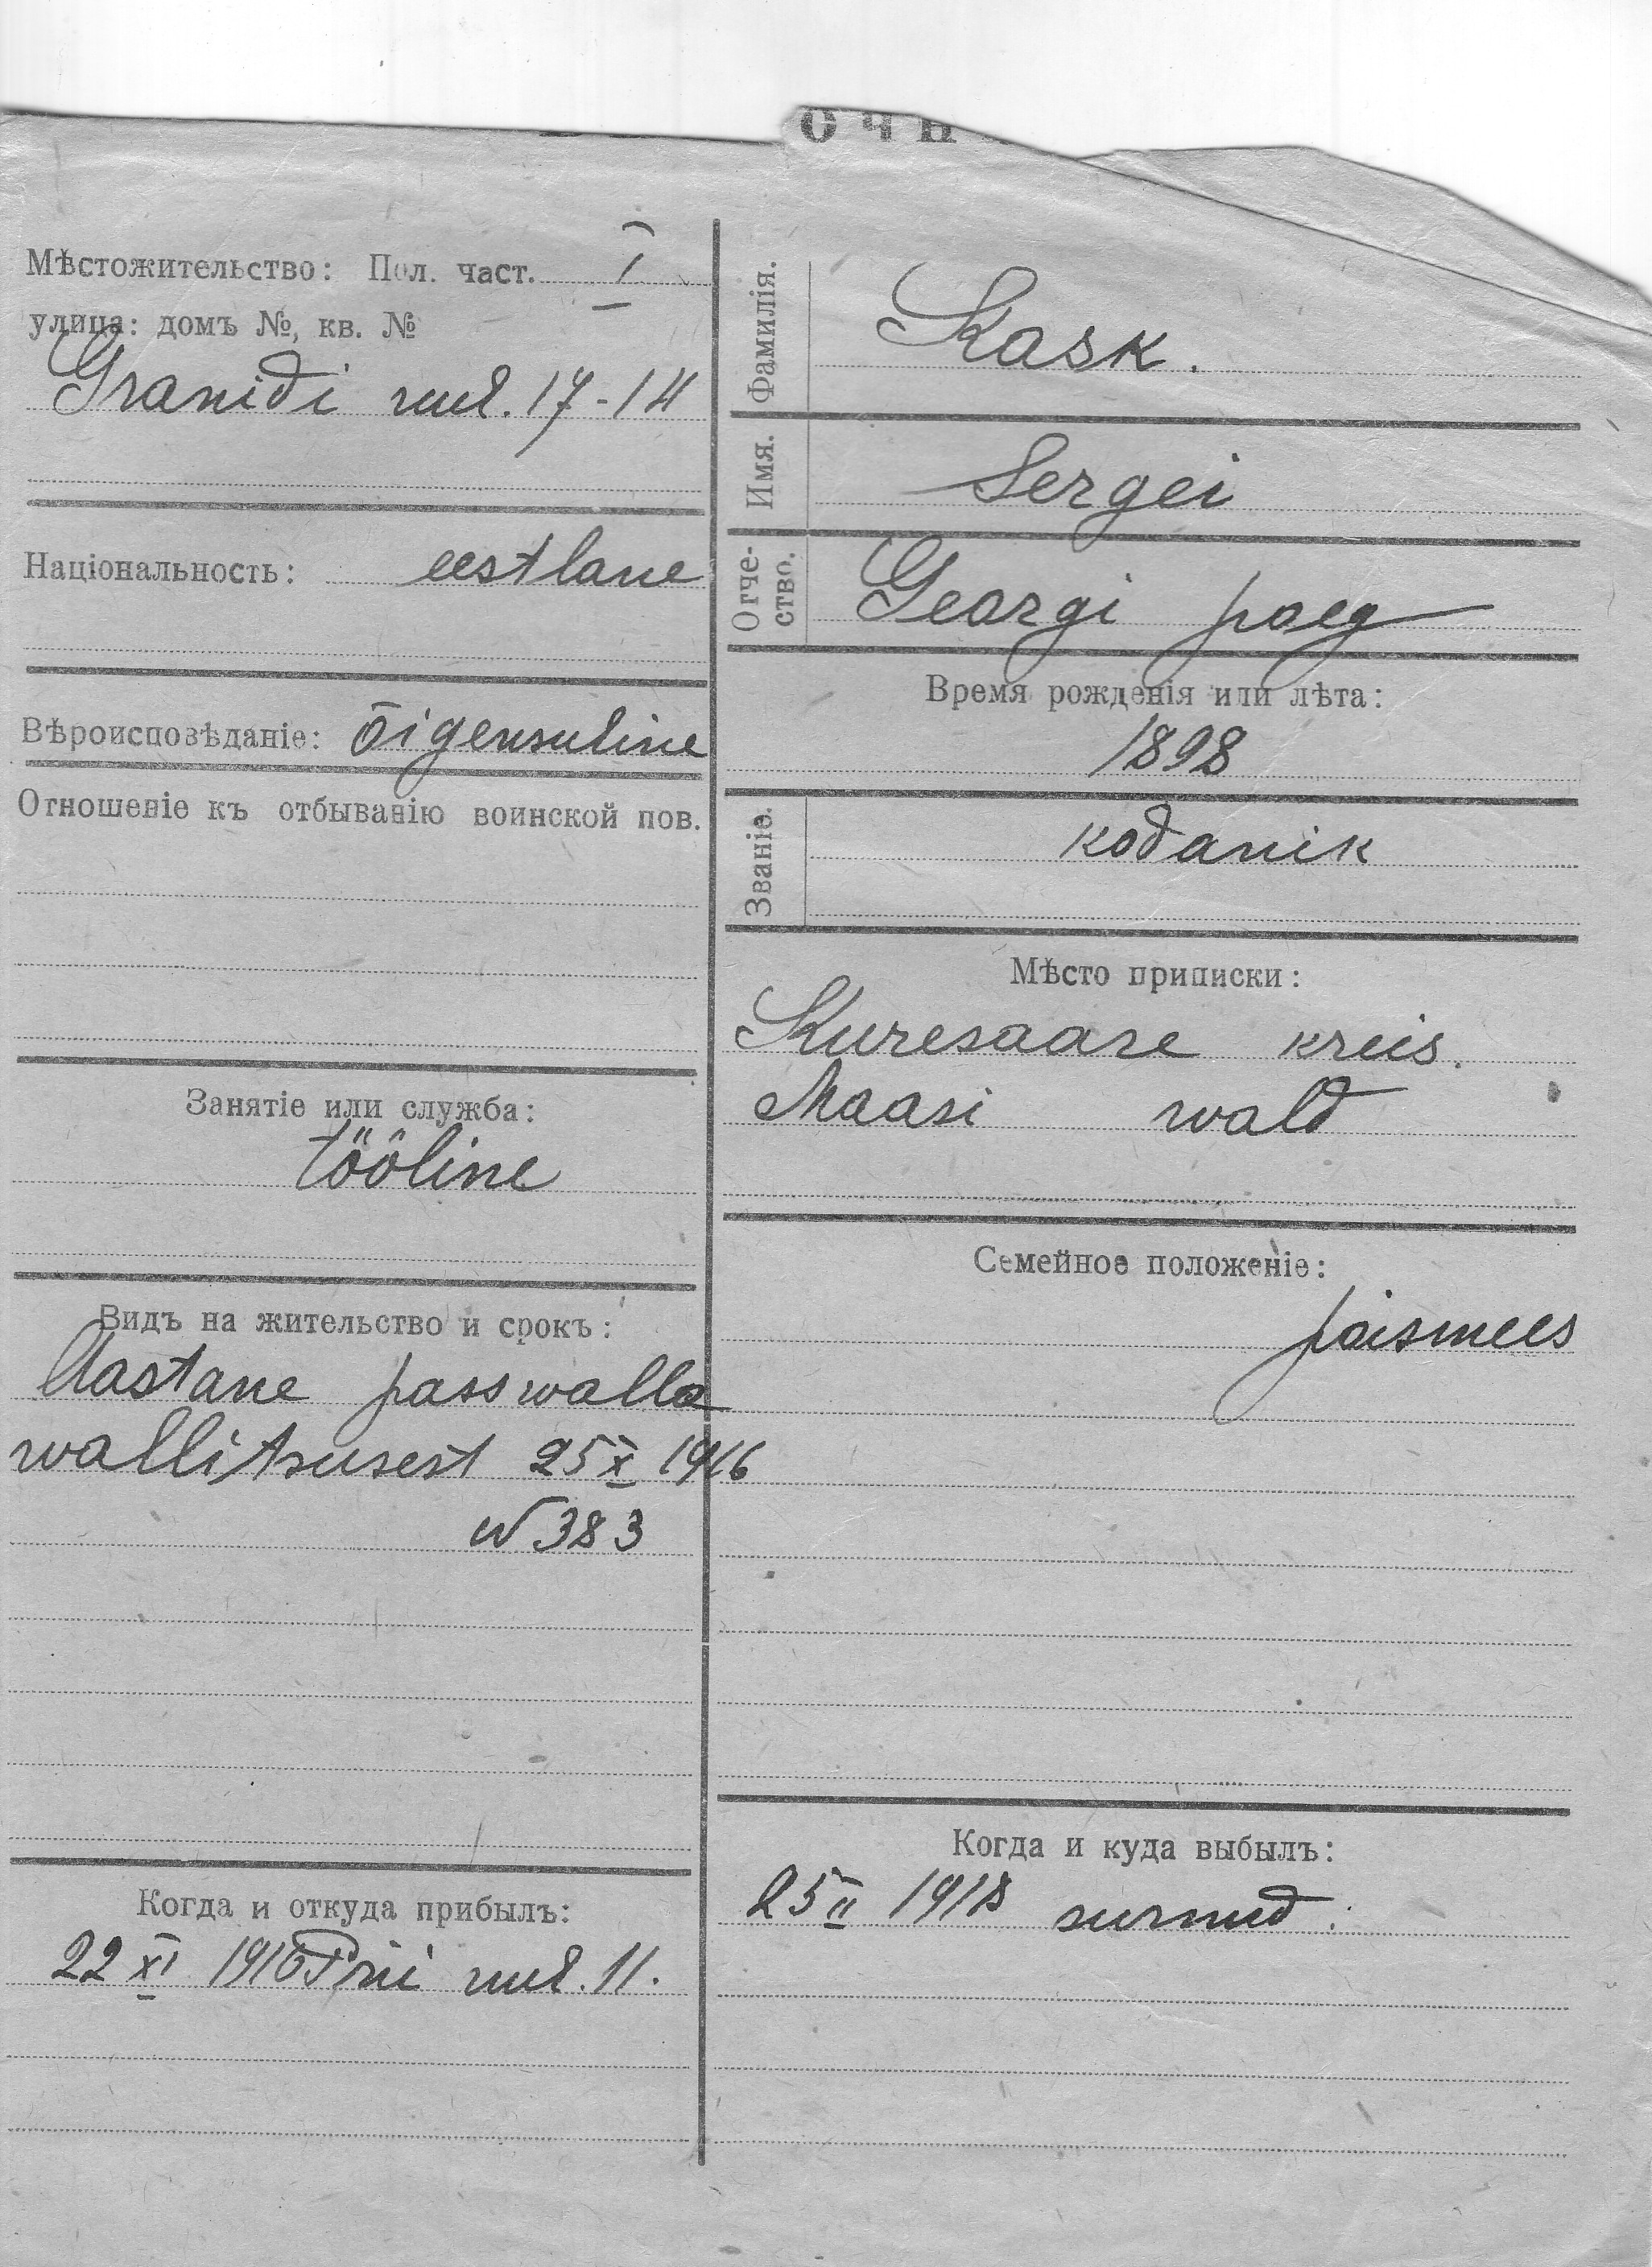 ОЧН
Мѣстожительство: Пол. част. I
улица: домъ №, кв. №
Graniidi uul. 17-14
Національность: eestlane
Вѣроисповѣданіе: õigeusuline
Отношеніе къ отбыванію воинской пов.
Занятіе или служба:
tööline
Видъ на жительство и срокъ:
Aastane pass walla
wallitsusest 25 X 1916
N 383
Когда и откуда прибылъ:
22 XI 1916 uul. 11.
Фамилія. Kask.
Имя. Sergei
Отче-
ство. Georgi poeg
Время рожденія или лѣта:
1898
Званіе. kodanik
Мѣсто приписки:
Kuresaare kreis.
Maasi wald
Семейное положеніе:
poismees
Когда и куда выбылъ:
25 II 1918 surnud.